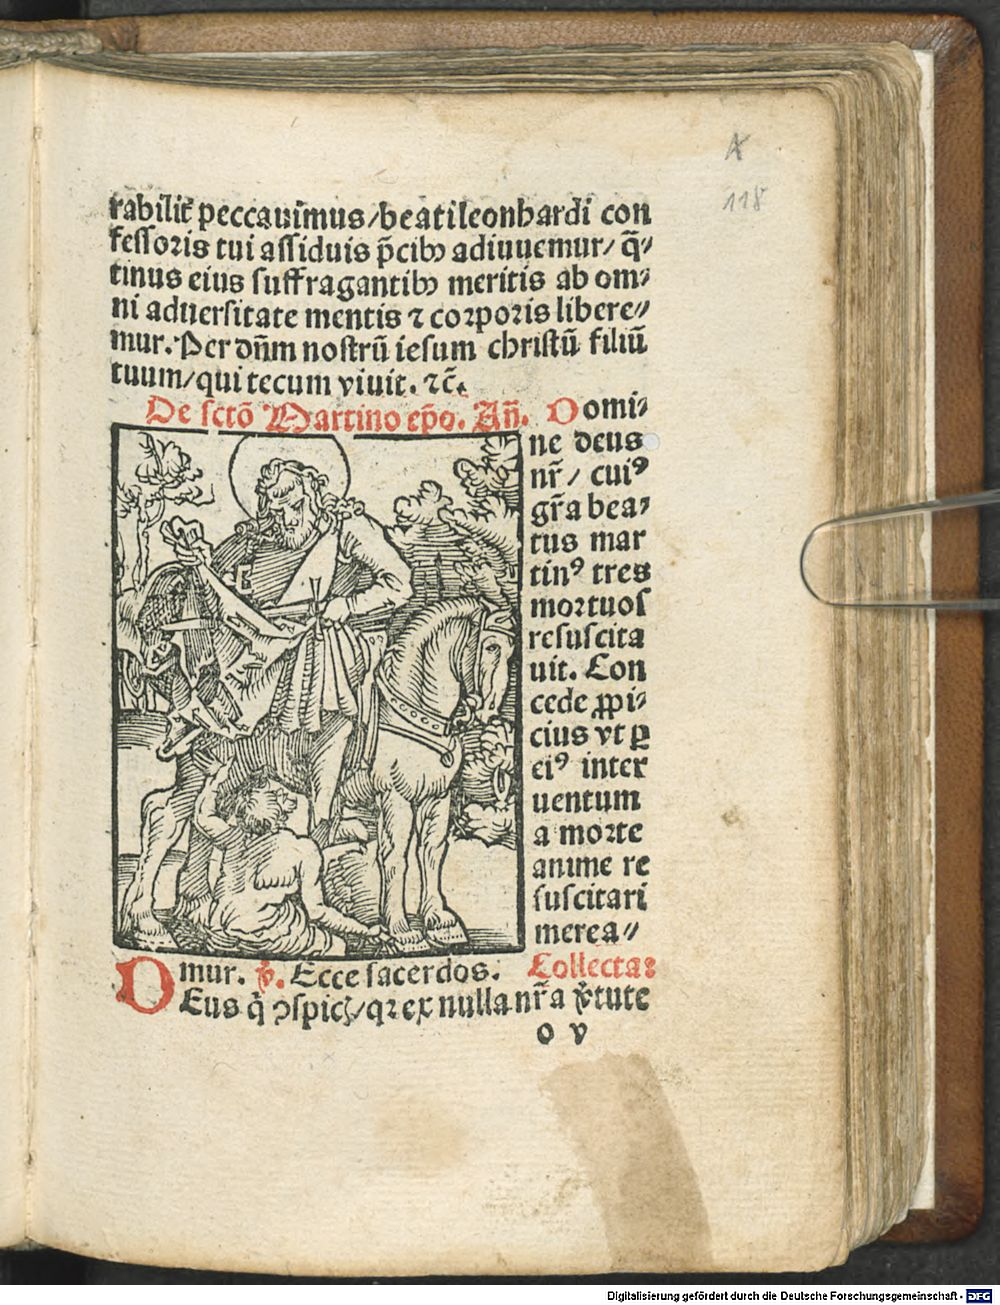 A
118
rabilit᷑ peccauimus/beati leonhardi con
fessoris tui assiduis p̄cibꝫ adiuuemur/ q̄⸗
tinus eius suffragantibꝫ meritis ab om⸗
ni aduersitate mentis ⁊ corporis libere⸗
mur. Per dn̄m nostrū iesum christū filiū
tuum/qui tecum viuit. ⁊c̄.
De sctō Martino ep̄o. Añ. Domi⸗
ne deus
nr̄/ cuiꝰ
gr̄a bea⸗
tus mar
tinꝰ tres
mortuos
resuscita
uit. Con
cede ꝓpi⸗
cius vt ꝑ
eiꝰ inter
uentum
a morte
anime re
suscitari
merea⸗
mur. ℣. Ecce sacerdos. Collecta:
DEus q̇ ↄspicꝭ/qꝛ ex nulla nr̄a v̓tute
o v
Digitalisierung gefördert durch die Deutsche Forschungsgemeinschaft - DFG